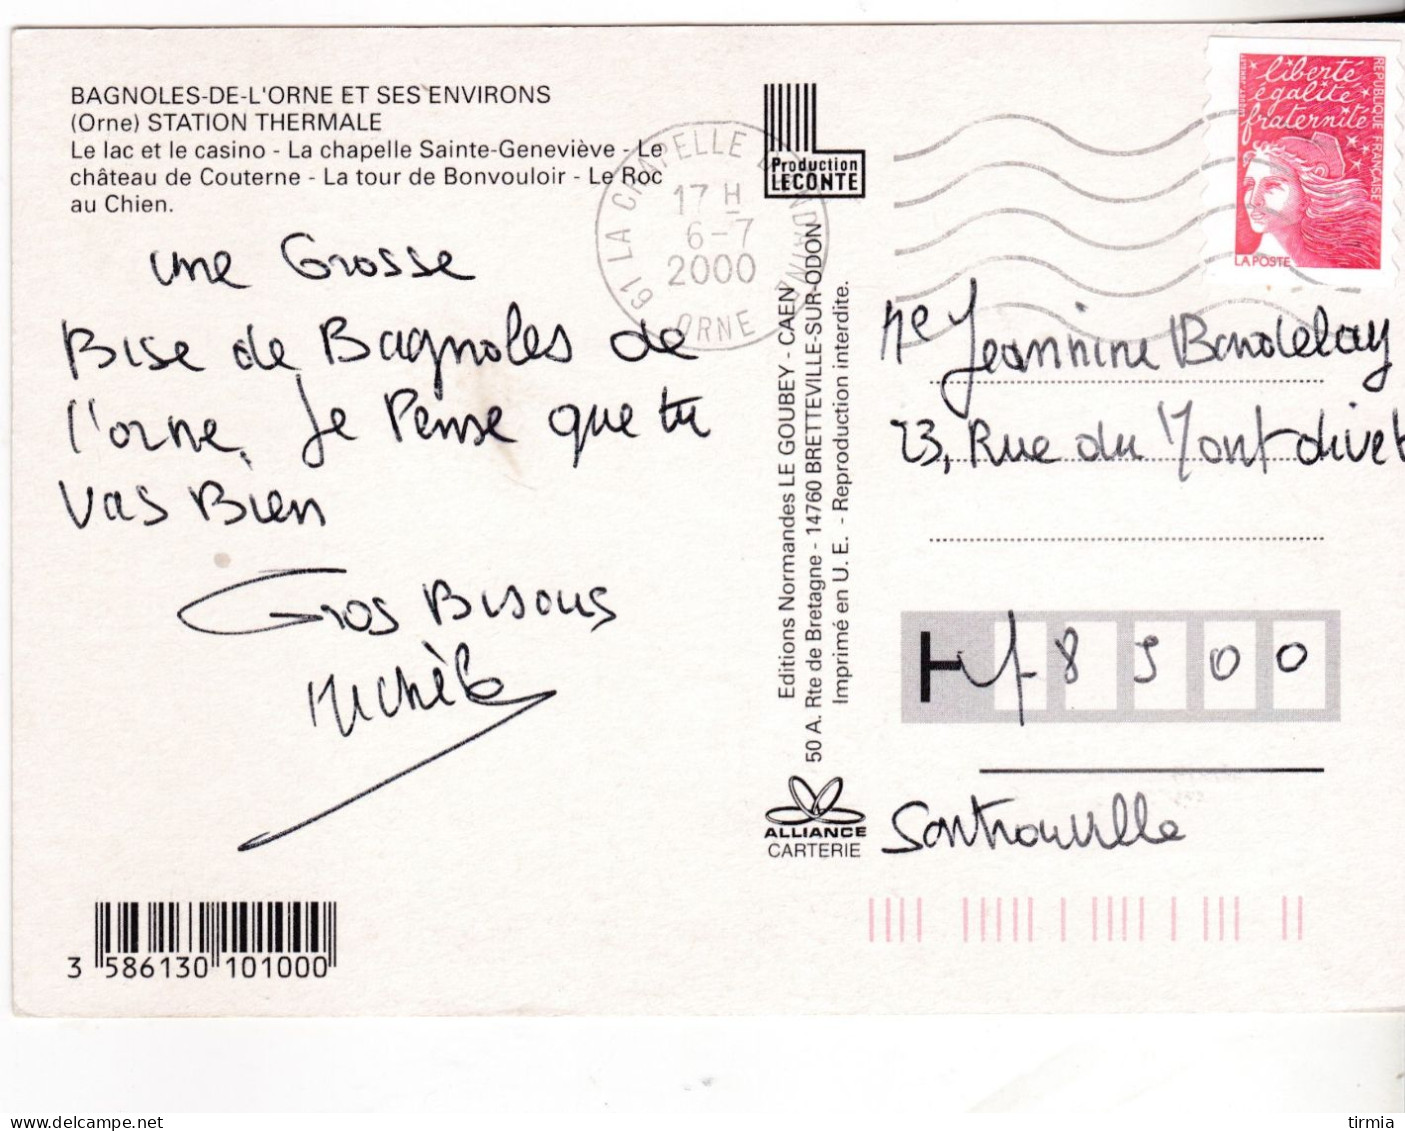 BAGNOLES-DE-L'ORNE ET SES ENVIRONS
(Orne) STATION THERMALE
Le lac et le casino - La chapelle Sainte-Geneviève - Le
château de Couterne - La tour de Bonvouloir - Le Roc
au Chien.
une Grosse
Bise de Bagnoles de
l'orne. Je Pense que tu
vas Bien
Gros Bisous
Michèle
3 586130 101000
Production
LECONTE
61 LA CHAPELLE D'ANDAINE
17 H
6-7
2000
ORNE
Editions Normandes LE GOUBEY - CAEN
50 A. Rte de Bretagne - 14760 BRETTEVILLE-SUR-ODON
Imprimé en U. E. - Reproduction interdite.
ALLIANCE
CARTERIE
liberté
égalité
fraternité
RÉPUBLIQUE FRANÇAISE
LA POSTE
Jeannine
23, Rue du Montdivet
78500
Sartrouville
delcampe.net
tirmia